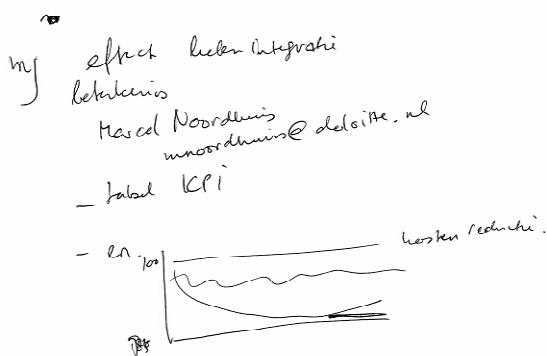 effect ketenintegratie
betekenis
Marcel Noordhuis
mnoordhuis@deloitte.nl
- tabel KPI
-
100
kosten reductie.